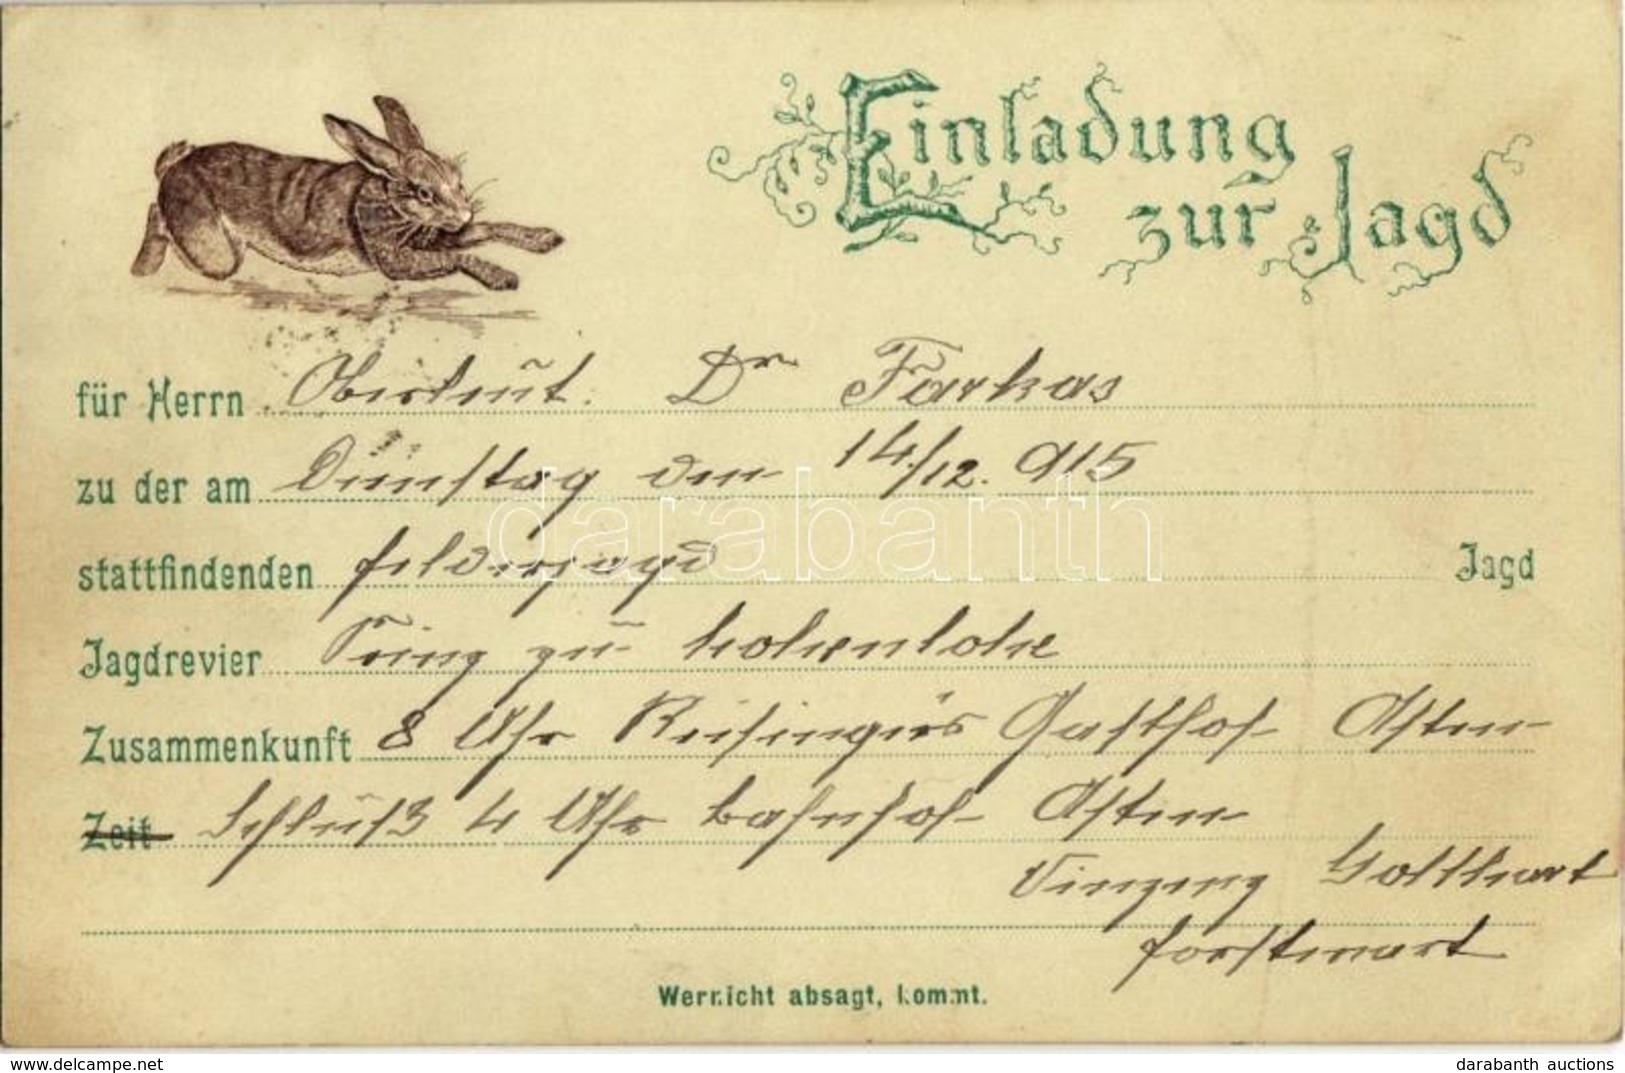 Einladung
zur Jagd
für Herrn Oberleut. Dr Farkas
zu der am Dienstag den 14./12. 915
stattfindenden Felderjagd Jagd
Jagdrevier Prinz zu Hohenlohe
Zusammenkunft 8 Uhr Reisingers Gasthof Asten
Zeit Schluß 4 Uhr Bahnhof Asten
Vinzenz Gotthart
Forstwart
Wer nicht absagt, kommt.
darabanth
darabanth auctions
delcampe.net